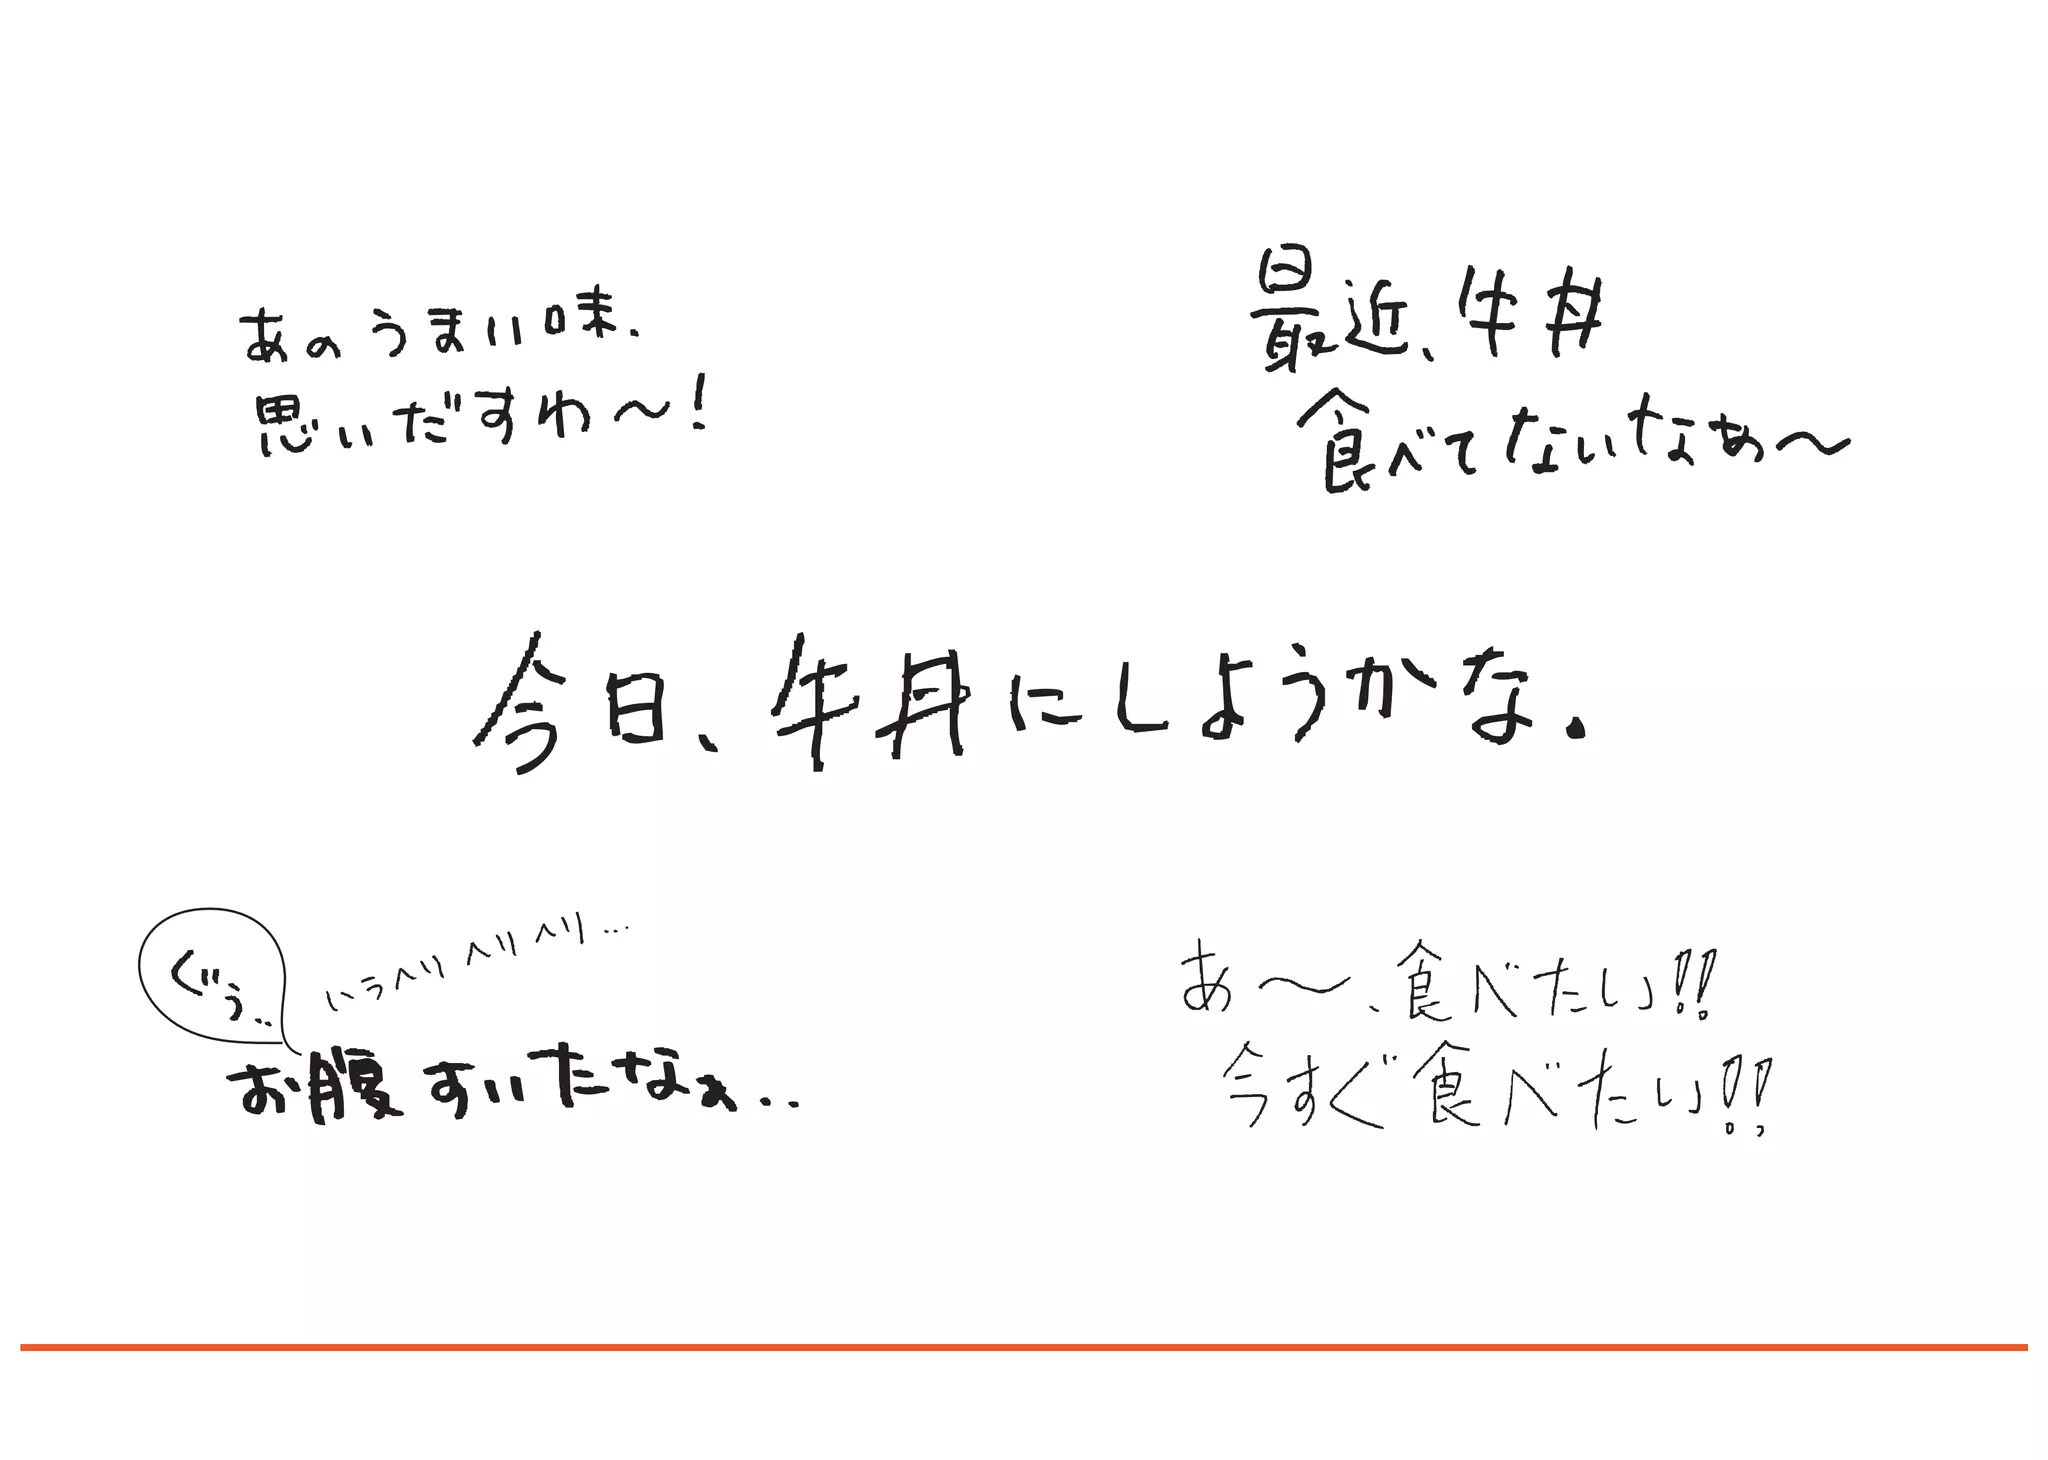 あのうまい味、
思いだすわ〜!
最近、牛丼
食べてないなぁ〜
今日、牛丼にしようかな.
ぐぅ..
いうへりへりへり...
お腹すいたなぁ..
あ〜、食べたい!!
今すぐ食べたい!!